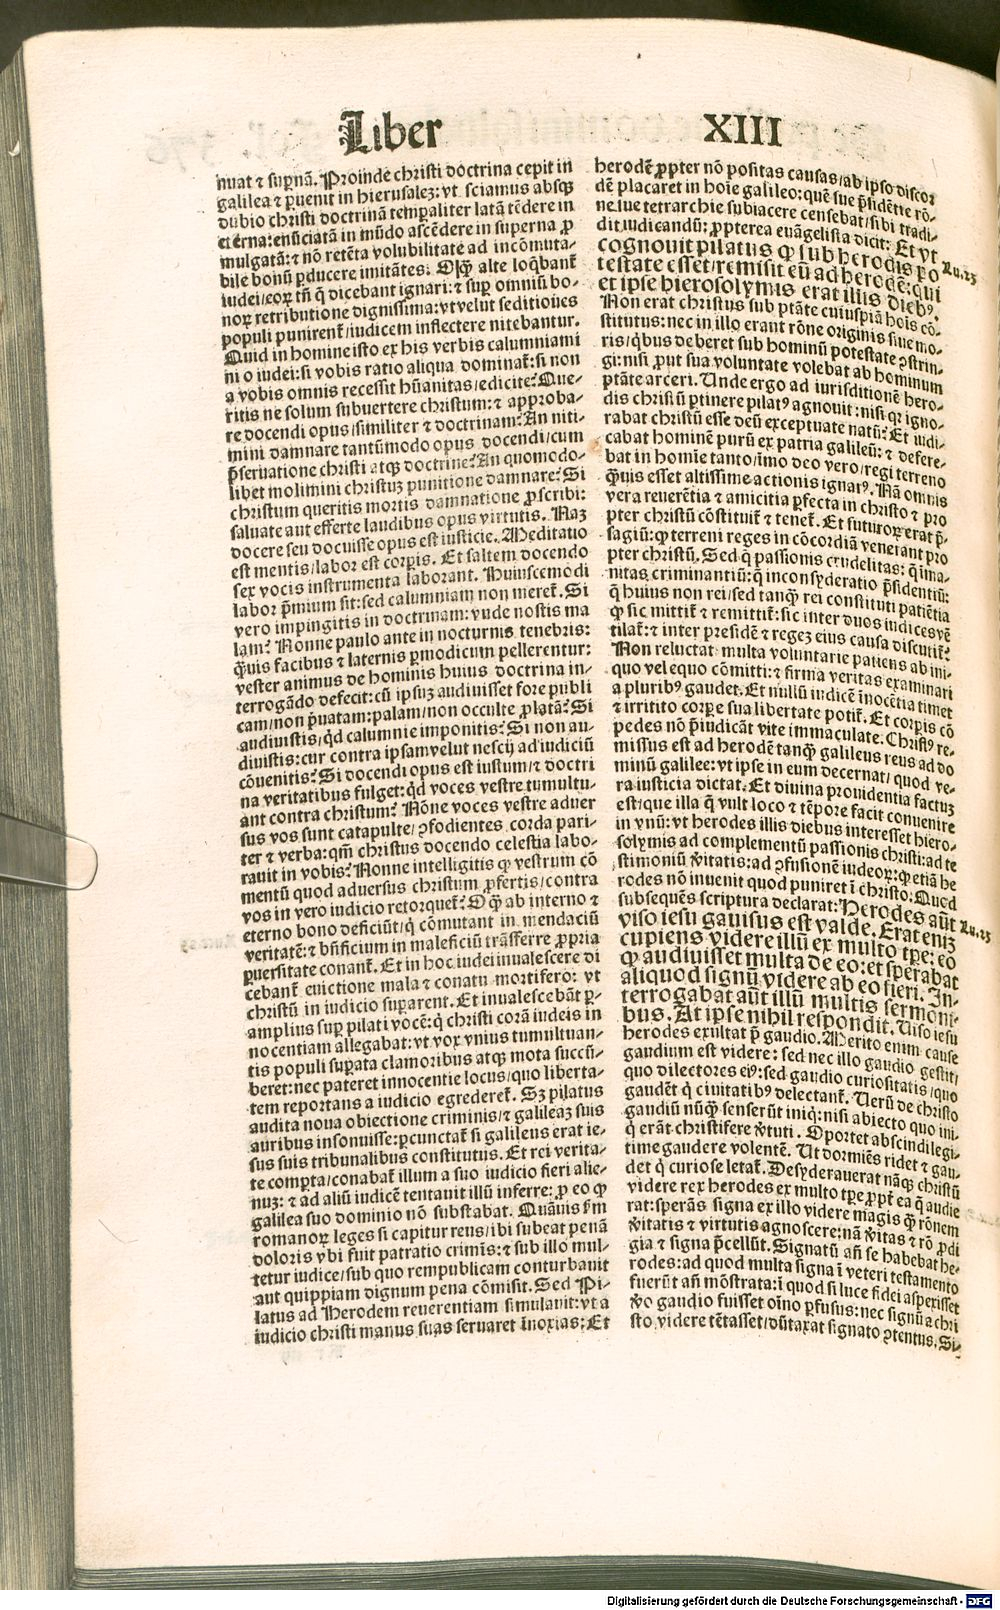 Liber XIII
nuat ⁊ suꝑnã. Proinde christi doctrina cepit in
galilea ⁊ ꝑuenit in hierusalez: vt sciamus absqꝫ
dubio christi doctrinã tempaliter latã tẽdere in
eterna: enũciatã in mũdo ascẽdere in superna ꝓ
mulgatã: ⁊ nõ retẽta volubilitate ad incõmuta-
bile bonũ ꝑducere imitãtes. Oqꝫ alte loq̃banť
iudei/eoꝝ tñ q̃ dicebant ignari: ⁊ suꝑ omniũ bo-
noꝝ retributione dignissima: vt velut seditiones
populi punirenť/iudicem inflectere nitebantur.
Quid in homine isto ex his verbis calumniami
ni o iudei: si vobis ratio aliqua dominať: si non
a vobis omnis recessit hũanitas/edicite? Que-
ritis ne solum subvertere christum: ⁊ approba-
re docendi opus/similiter ⁊ doctrinam? An niti-
mini damnare tantũmodo opus docendi/cum
p̃seruatione christi atqꝫ doctrine? An quomodo-
libet molimini christuz punitione damnare? Si
christum queritis mortis damnatione ꝓscribi:
saluate aut efferte laudibus opus virtutis. Naz
docere seu docuisse opus est iusticie. Meditatio
est mentis/labor est corꝑis. Et saltem docendo
sex vocis instrumenta laborant. Huiuscemodi
labor p̃mium sit: sed calumniam non mereť. Si
vero impingitis in doctrinam: vnde nostis ma
lam? Nonne paulo ante in nocturnis tenebris:
q̃uis facibus ⁊ laternis ꝑmodicum pellerentur:
vester animus de hominis huius doctrina in-
terrogãdo defecit: cũ ipsuz audiuisset fore publi
cam/non p̃uatam: palam/non occulte ꝓlatã? Si
audiuistis/qd̃ calumnie imponitis? Si non au-
diuistis: cur contra ipsam velut nescij ad iudiciũ
cõuenitis? Si docendi opus est iustum/⁊ doctri
na veritatibus fulget: qd̃ voces vestre tumultu-
ant contra christum? Nõne voces vestre aduer
sus vos sunt catapulte/ꝯfodientes corda pari-
ter ⁊ verba: qm̃ christus docendo celestia labo-
rauit in vobis? Nonne intelligitis ꝙ vestrum cõ
mentũ quod aduersus christum ꝓfertis/contra
vos in vero iudicio retorqueť? O q̃ ab interno ⁊
eterno bono deficiũt/q̃ cõmutant in mendaciũ
veritatẽ: ⁊ bñficium in maleficiũ trãsferre ꝓpria
ꝑuersitate conanť. Et in hoc iudei inualescere di
cebanť euictione mala ⁊ conatu mortifero: vt
christũ in iudicio suꝑarent. Et inualescebãt ꝑ-
amplius suꝑ pilati vocẽ: q̃ christi corã iudeis in
nocentiam allegabat: vt vox vnius tumultuan-
tis populi suꝑata clamoribus atqꝫ mota succũ-
beret: nec pateret innocentie locus/quo liberta-
tem reportans a iudicio egredereť. Sꝫ pilatus
audita noua obiectione criminis/⁊ galileaz suis
auribus insonuisse: ꝑcunctať si galileus erat ie-
sus suis tribunalibus constitutus. Et rei verita-
te comꝑta/conabať illum a suo iudicio fieri alie-
nuz: ⁊ ad aliũ iudicẽ tentauit illũ inferre: ꝓ eo ꝙ
galilea suo dominio nõ substabat. Quãuis ẜm
romanoꝝ leges si capitur reus/ibi subeat penã
doloris vbi fuit patratio crimĩs: ⁊ sub illo mul-
tetur iudice/sub quo rempublicam conturbauit
aut quippiam dignum pena cõmisit. Sed Pi-
latus ad Herodem reuerentiam simulauit: vt a
iudicio christi manus suas seruaret inoxias: Et
herodẽ ꝓpter nõ positas causas/ab ipso discor
dẽ placaret in hoĩe galileo: quẽ sue p̃sidẽtie rõ-
ne/sue tetrarchie subiacere censebat/sibi tradi-
dit iudicandũ: ꝓpterea euãgelista dicit: Et vt
cognouit pilatus ꝙ sub herodis po Lu.23
testate esset/remisit eũ ad herodẽ: qui
et ipse hierosolymis erat illis dieb⁹.
Non erat christus sub ptãte cuiuspiã hoĩs cõ-
stitutus: nec in illo erant rõne originis siue mo-
ris/q̃bus deberet sub hominũ potestate ꝯstrin-
gi: nisi ꝓut sua voluntate volebat ab hominum
ptãte arceri. Unde ergo ad iurisditionẽ hero-
dis christũ ꝑtinere pilat⁹ agnouit: nisi qꝛ igno-
rabat christũ esse deũ exceptuate natũ? Et iudi-
cabat hominẽ purũ ex patria galileũ: ⁊ defere-
bat in homĩe tanto/imo deo vero/regi terreno
q̃uis esset altissime actionis ignar⁹. Nã omnis
vera reuerẽtia ⁊ amicitia ꝑfecta in christo ⁊ pro
pter christũ cõstituiť ⁊ teneť. Et futuroꝝ erat p̃-
sagiũ: ꝙ terreni reges in cõcordiã venerant pro
pter christũ. Sed q̃ passionis crudelitas: q̃ ima-
nitas criminantiũ: q̃ inconsyderatio p̃sidentiũ:
q̃ huius non rei/sed tanq̃ rei constituti patiẽtia
ꝙ sic mittiť ⁊ remittiť: sic inter duos iudices vẽ
tilať: ⁊ inter presidẽ ⁊ regez eius causa discutiť?
Non reluctať multa voluntarie patiens ab ini-
quo vel equo cõmitti: ⁊ firma veritas examinari
a plurib⁹ gaudet. Et nullũ iudicẽ inocẽtia timet
⁊ irritito corꝑe sua libertate potiť. Et corꝑis cõ
pedes nõ p̃iudicãt vite immaculate. Christ⁹ re-
missus est ad herodẽ tanq̃ galileus reus ad do
minũ galilee: vt ipse in eum decernat/quod ve-
ra iusticia dictat. Et diuina prouidentia factuz
est/que illa q̃ vult loco ⁊ tẽpore facit conuenire
in vnũ: vt herodes illis diebus interesset hiero-
solymis ad complementũ passionis christi: ad te
stimoniũ ṽitatis: ad ꝯfusionẽ iudeoꝝ: ꝙ etiã he
rodes nõ inuenit quod puniret ĩ christo. Quod
subsequẽs scriptura declarat: Herodes aũt
viso iesu gauisus est valde. Erat eniz Lu.23
cupiens videre illũ ex multo tꝑe: eo
ꝙ audiuisset multa de eo: et sperabat
aliquod signũ videre ab eo fieri. In-
terrogabat aũt illũ multis sermoni-
bus. At ipse nihil respondit. Uiso iesu
herodes exultat p̃ gaudio. Merito enim cause
gaudium est videre: sed nec illo gaudio gestit/
quo dilectores ei⁹: sed gaudio curiositatis/quo
gaudẽt q̃ ciuitatib⁹ delectanť. Uerũ de christo
gaudiũ nũq̃ senserũt iniq̃: nisi abiecto quo ini-
q̃ erãt christifere ṽtuti. Oportet abscindi legi-
time gaudere volentẽ. Ut dormiẽs ridet ⁊ gau-
det q̃ curiose letať. Desyderauerat nãqꝫ christũ
videre rex herodes ex multo tꝑe ꝓpť ea q̃ audie
rat: sperãs signa ex illo videre magis q̃ rõnem
ṽitatis ⁊ virtutis agnoscere: nã ṽitas ⁊ rõ ꝓdi
gia ⁊ signa p̃cellũt. Signatũ añ se habebat he-
rodes: ad quod multa signa ĩ veteri testamento
fuerũt añ mõstrata: ĩ quod si luce fidei aspexisset
ṽo gaudio fuisset oĩno ꝑfusus: nec signũ a chri
sto videre tẽtasset/dũtaxat signato ꝯtentus. Si-
Digitalisierung gefördert durch die Deutsche Forschungsgemeinschaft - DFG